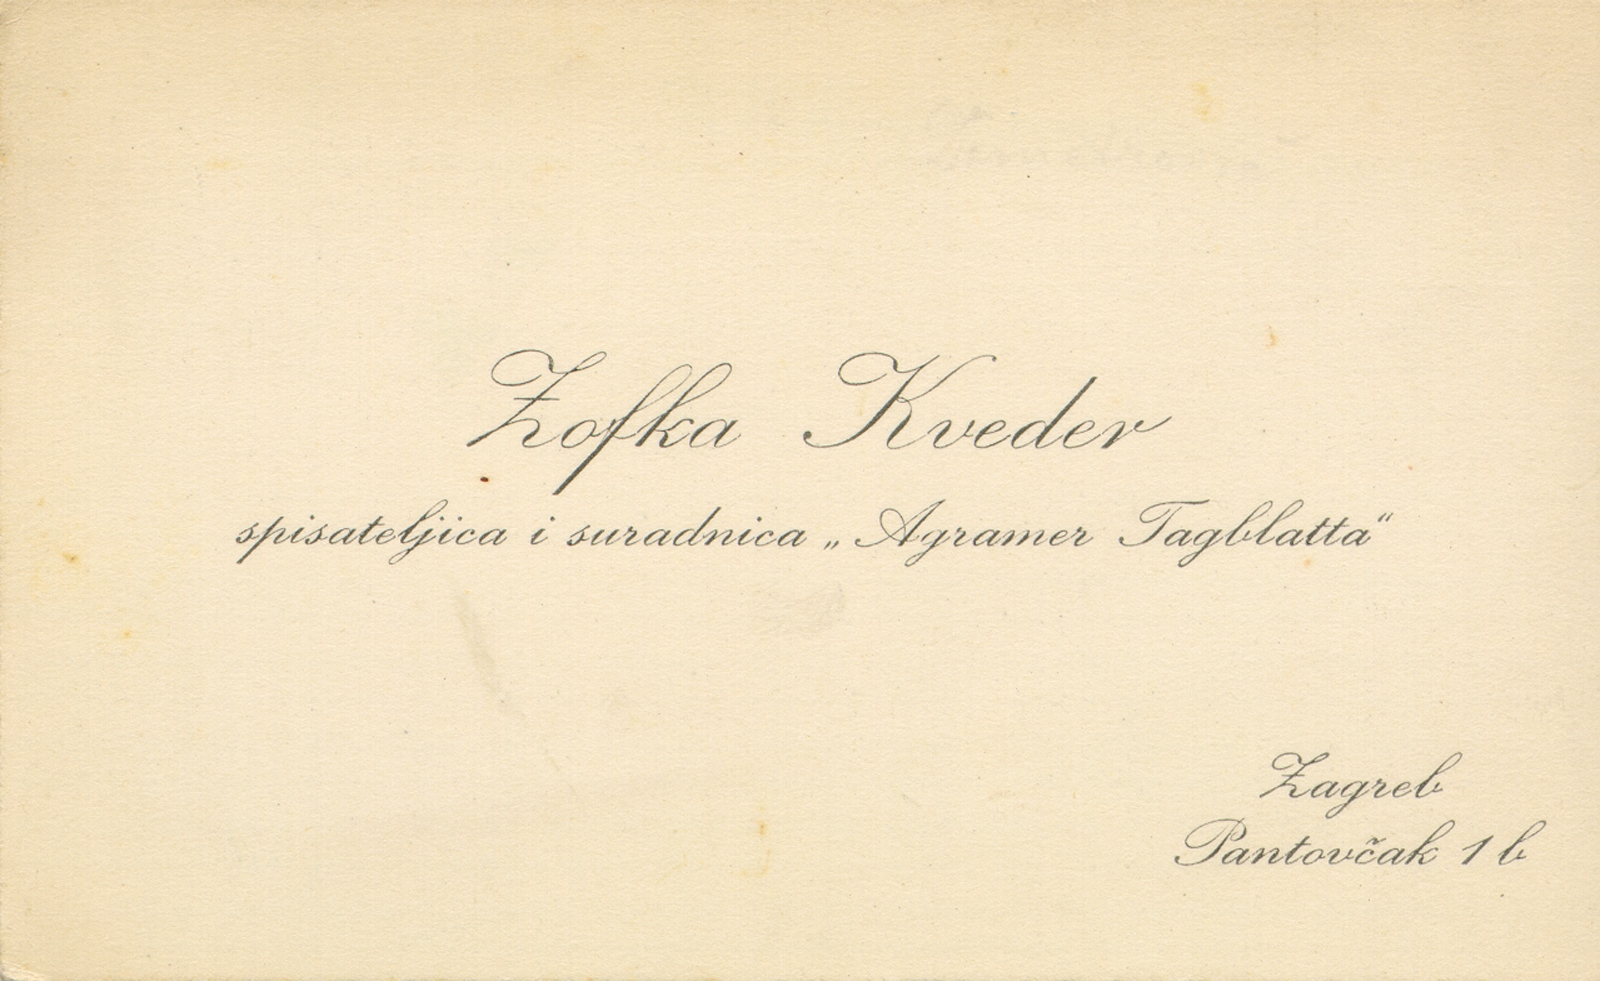 Zofka Kveder
spisateljica i suradnica „Agramer Tagblatta“
Zagreb
Pantovčak 1 b